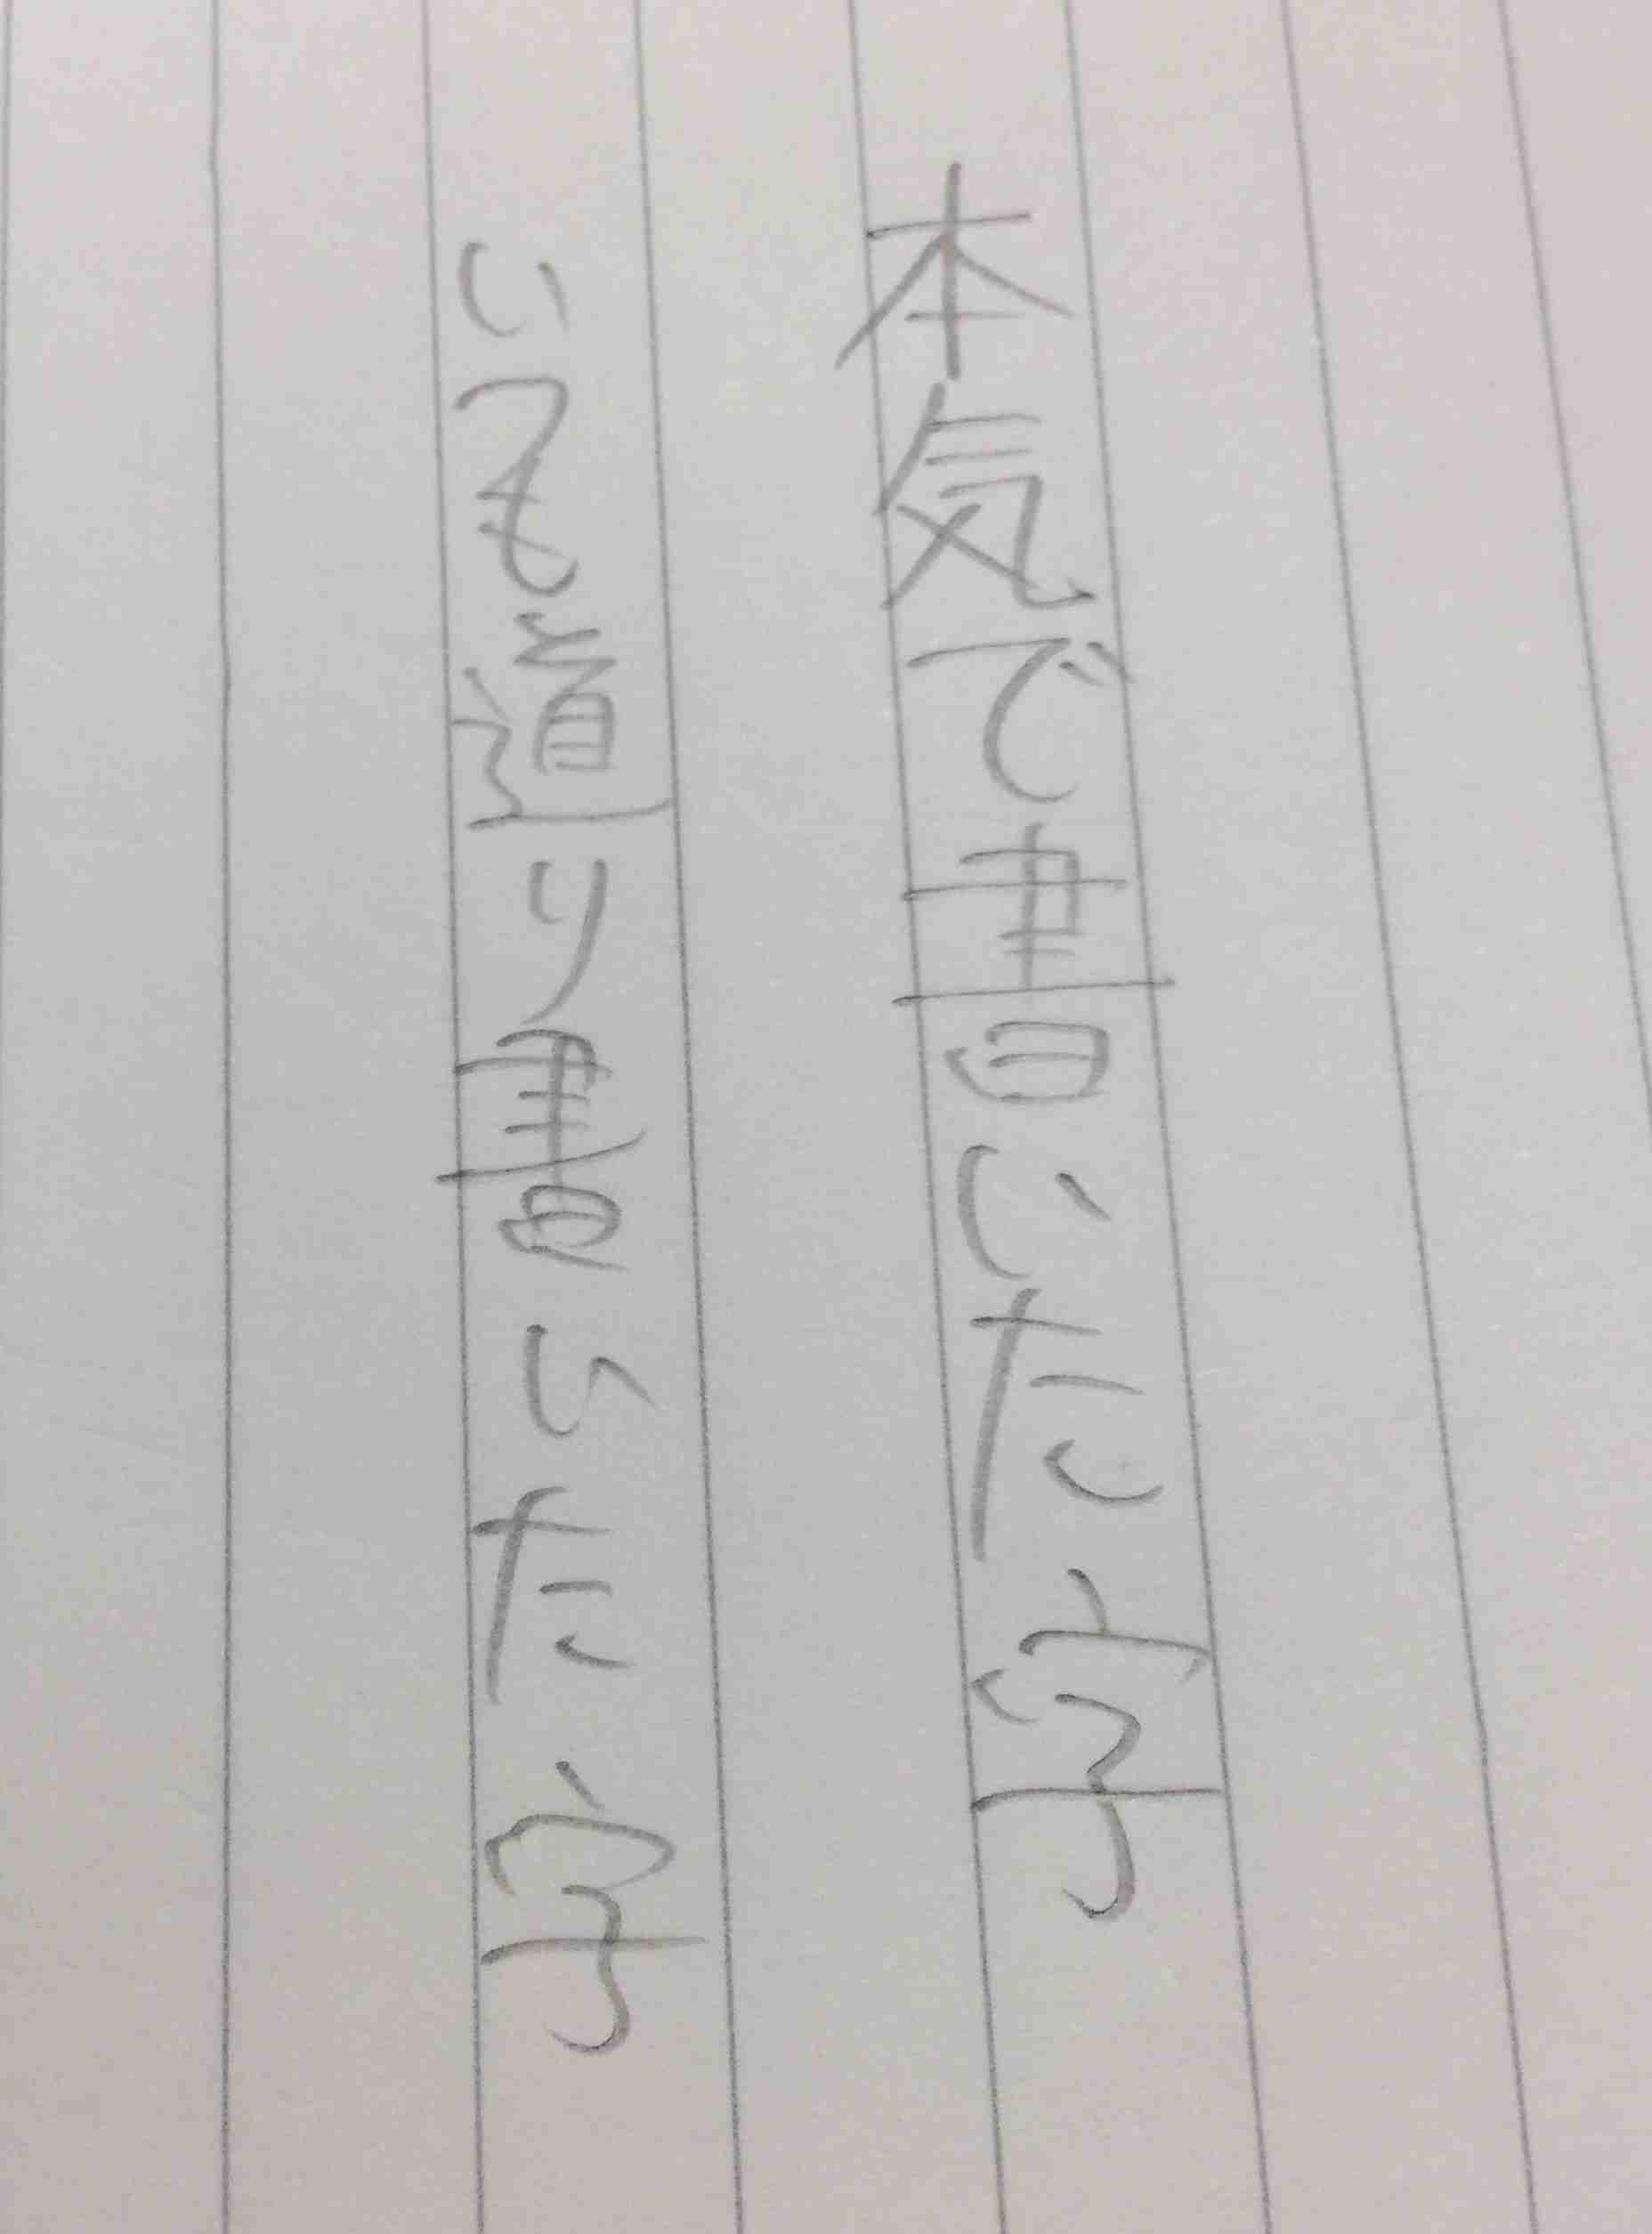 本気で書いた字
いつも通り書いた字